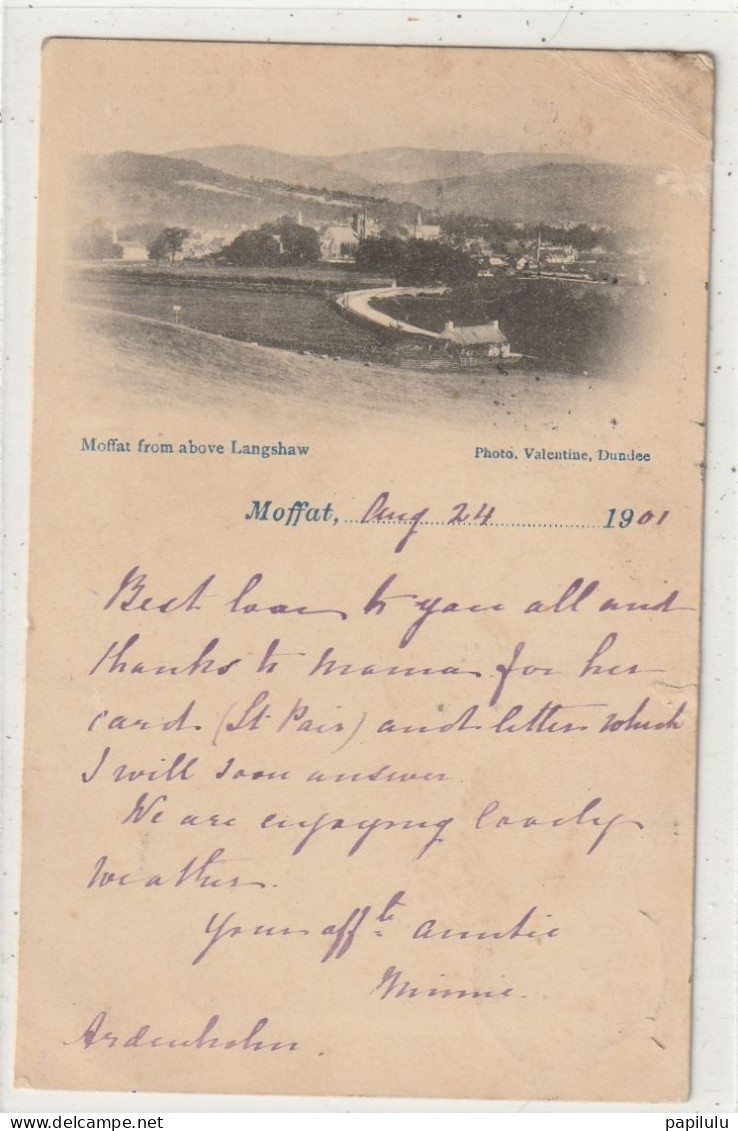 Moffat from above Langshaw
Photo. Valentine, Dundee
Moffat, Aug 24 1901
Best love to you all and
thanks to Mama for her
card (St Pair) and letter which
I will soon answer.
We are enjoying lovely
weather.
Your afft.te Auntie
Minnie.
Ardenholm
papilulu